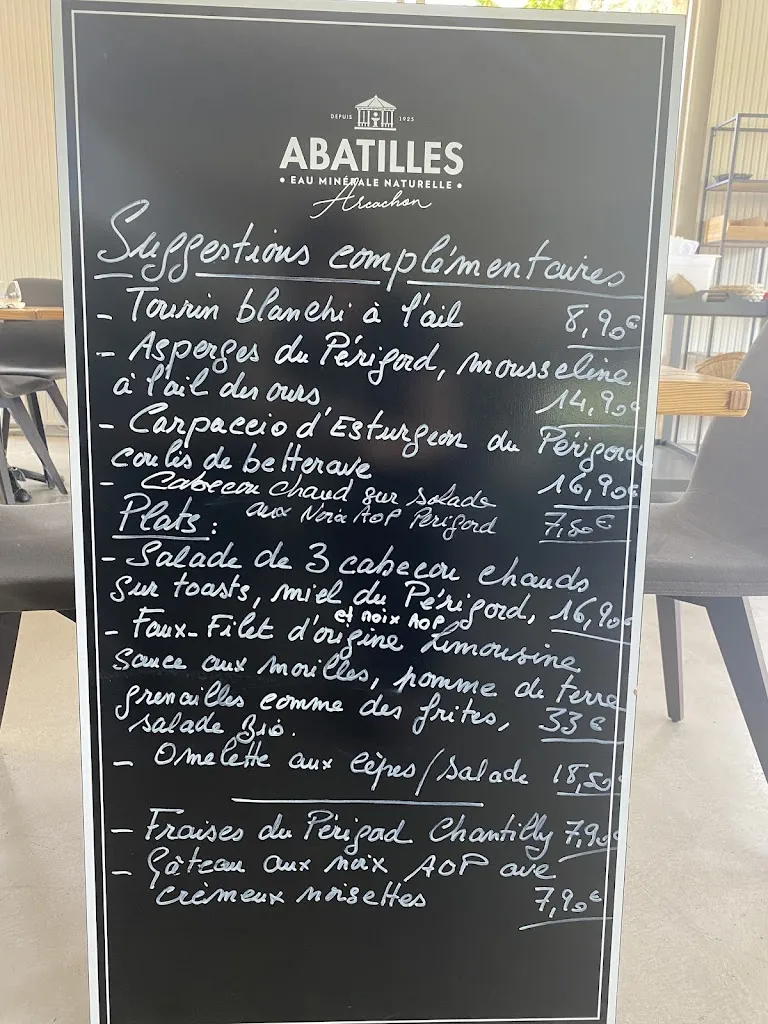 DEPUIS 1925
ABATILLES
• EAU MINÉRALE NATURELLE •
Arcachon
Suggestions complémentaires
- Tourin blanchi à l'ail 8,90€
- Asperges du Périgord, mousseline
à l'ail des ours 14,90€
- Carpaccio d'Esturgeon du Périgord
coulis de betterave 16,90€
- Cabecou chaud sur salade
aux Noix AOP Périgord 7,80€
Plats :
- Salade de 3 cabecou chauds
sur toasts, miel du Périgord, 16,90€
et noix AOP
- Faux-Filet d'origine Limousine
Sauce aux morilles, pomme de terre
grenailles comme des frites, 33€
salade Bio.
- Omelette aux cèpes/salade 18,50€
- Fraises du Périgord Chantilly 7,90€
- Gâteau aux noix AOP ave
crèmeux noisettes 7,90€